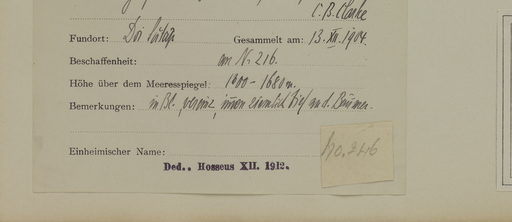 C. B. Clarke
Fundort: Doi Sutäp
Gesammelt am: 13. XII. 1904.
Beschaffenheit: am N. 216.
Höhe über dem Meeresspiegel: 1600 - 1680 m.
Bemerkungen: in Bl., immer ziemlich tief an d. Bäumen.
Einheimischer Name:
Ded.. Hosseus XII. 1912.
No. 216